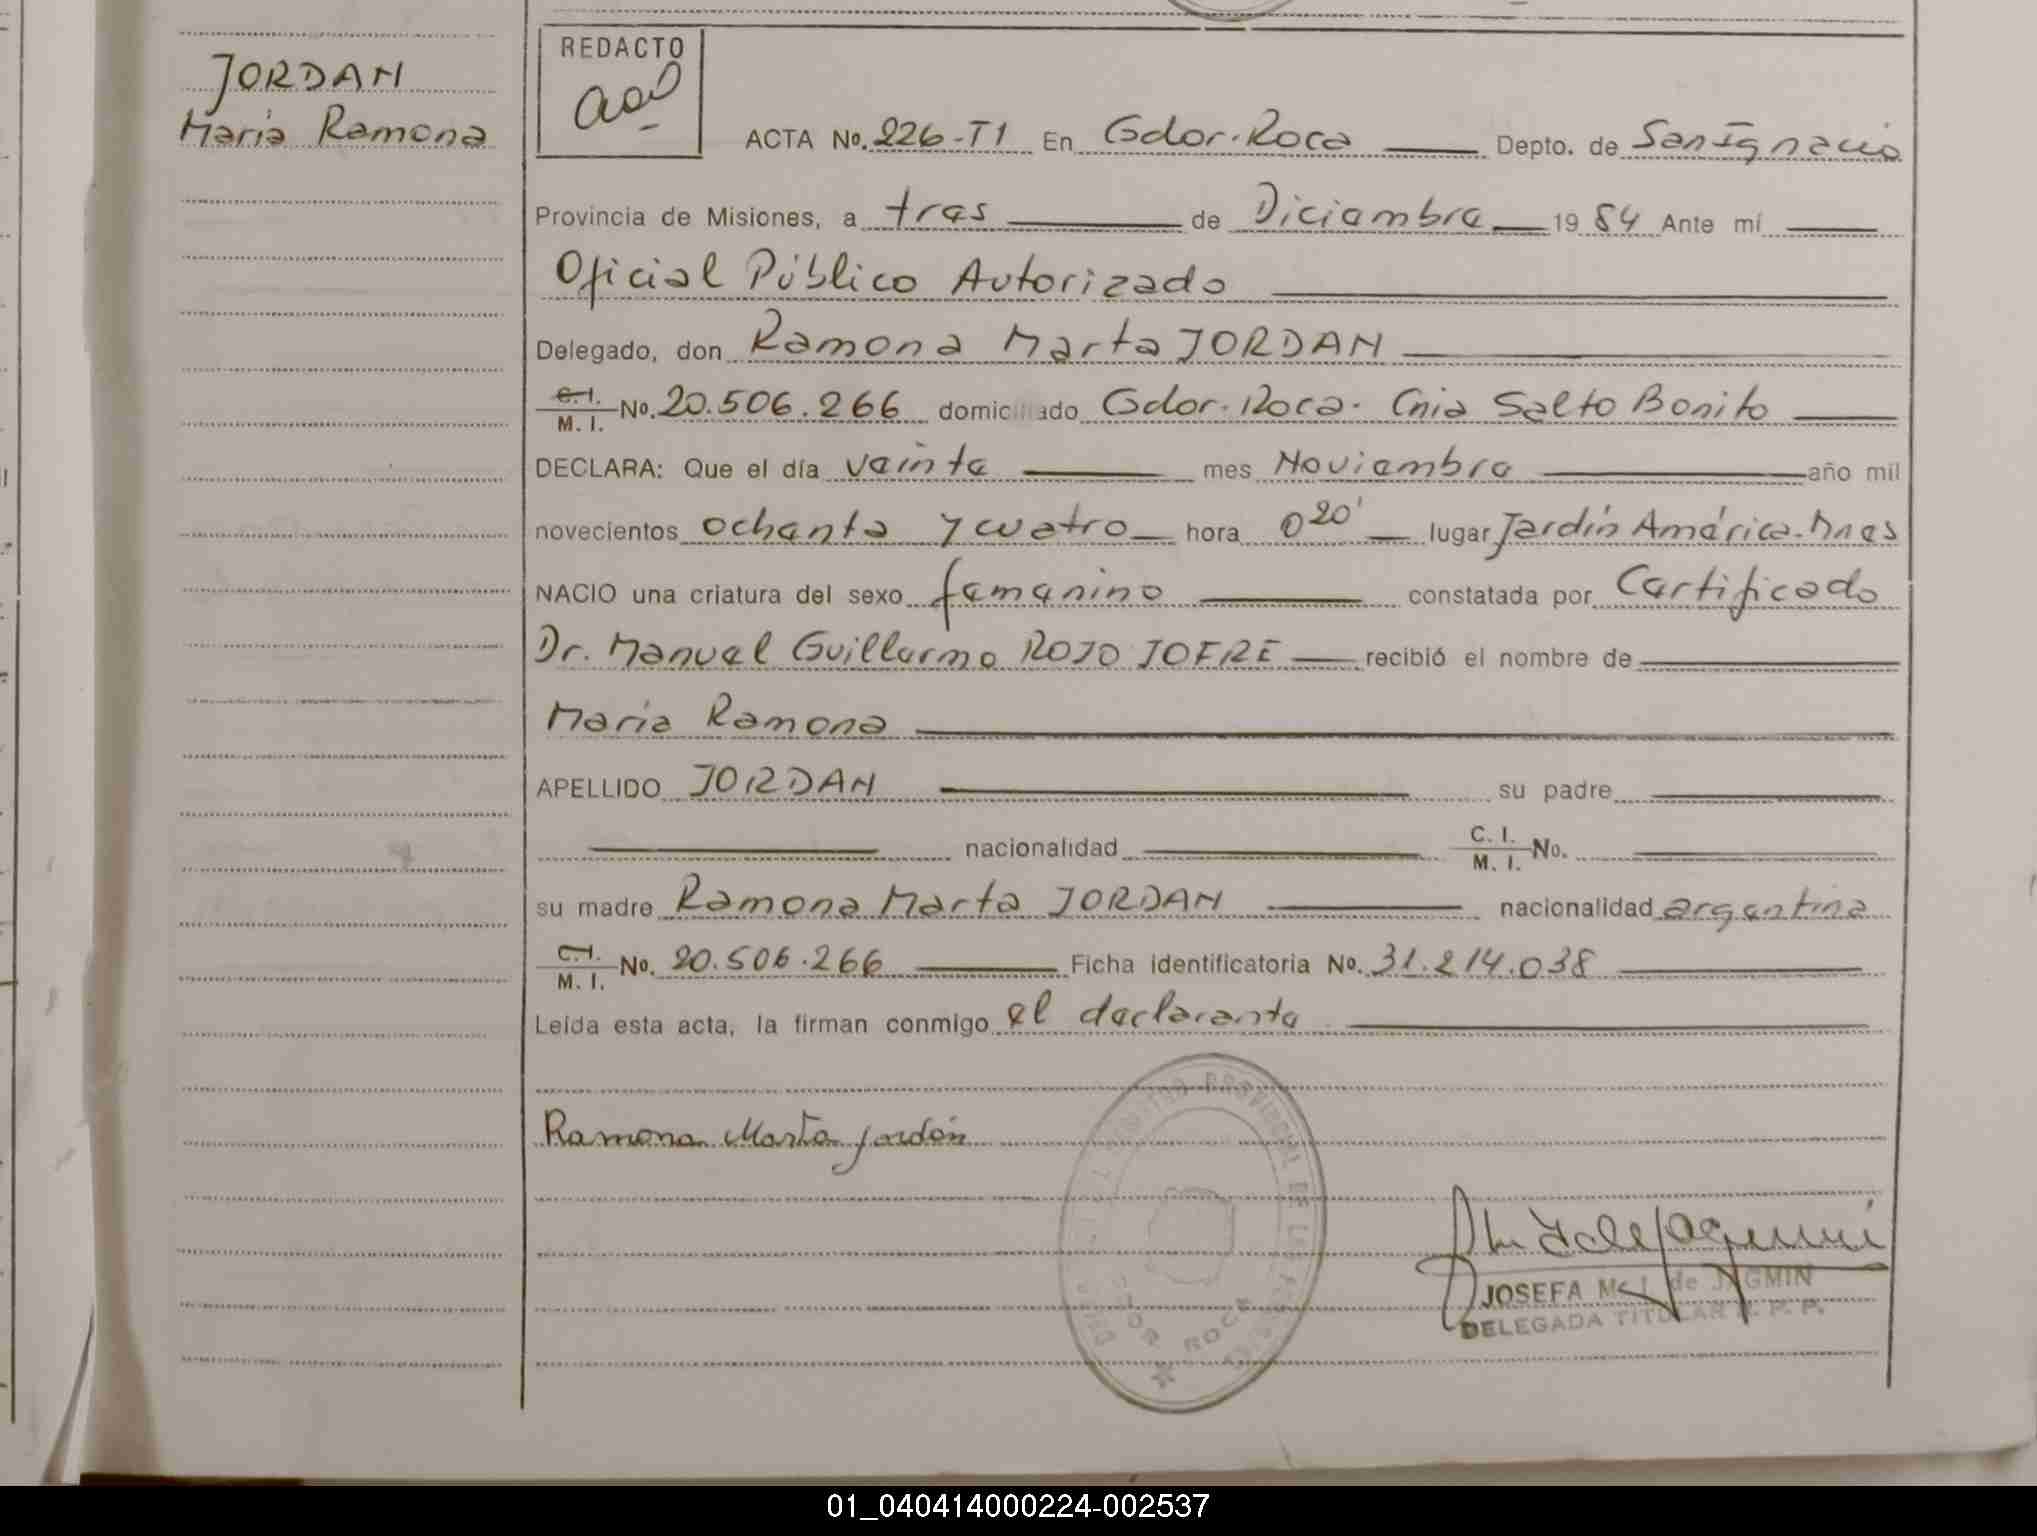 JORDAN
Maria Ramona
REDACTO
ACTA No. 226-T1 En Gdor. Roca Depto. de San Ignacio
Provincia de Misiones, a tres de Diciembre 1984 Ante mí
Oficial Público Autorizado
Delegado, don Ramona Marta JORDAN
C.I. M.I. No. 20.506.266 domiciliado Gdor. Roca. Cnia Salto Bonito
DECLARA: Que el día veinte mes Noviembre año mil
novecientos ochenta y cuatro hora 0 20' lugar Jardín América. Mnes
NACIO una criatura del sexo femenino constatada por Certificado
Dr. Manuel Guillermo ROJO JOFRE recibió el nombre de
Maria Ramona
APELLIDO JORDAN su padre
nacionalidad C. I. M. I. No.
su madre Ramona Marta JORDAN nacionalidad argentina
C.I. M. I. No. 20.506.266 Ficha identificatoria No. 31.214.038
Leída esta acta, la firman conmigo el declarante
Ramona Marta Jordán
JOSEFA de JAGMIN
DELEGADA TITULAR R. P. P.
REGISTRO PROVINCIAL DE LAS PERSONAS
GDOR ROCA
01_040414000224-002537